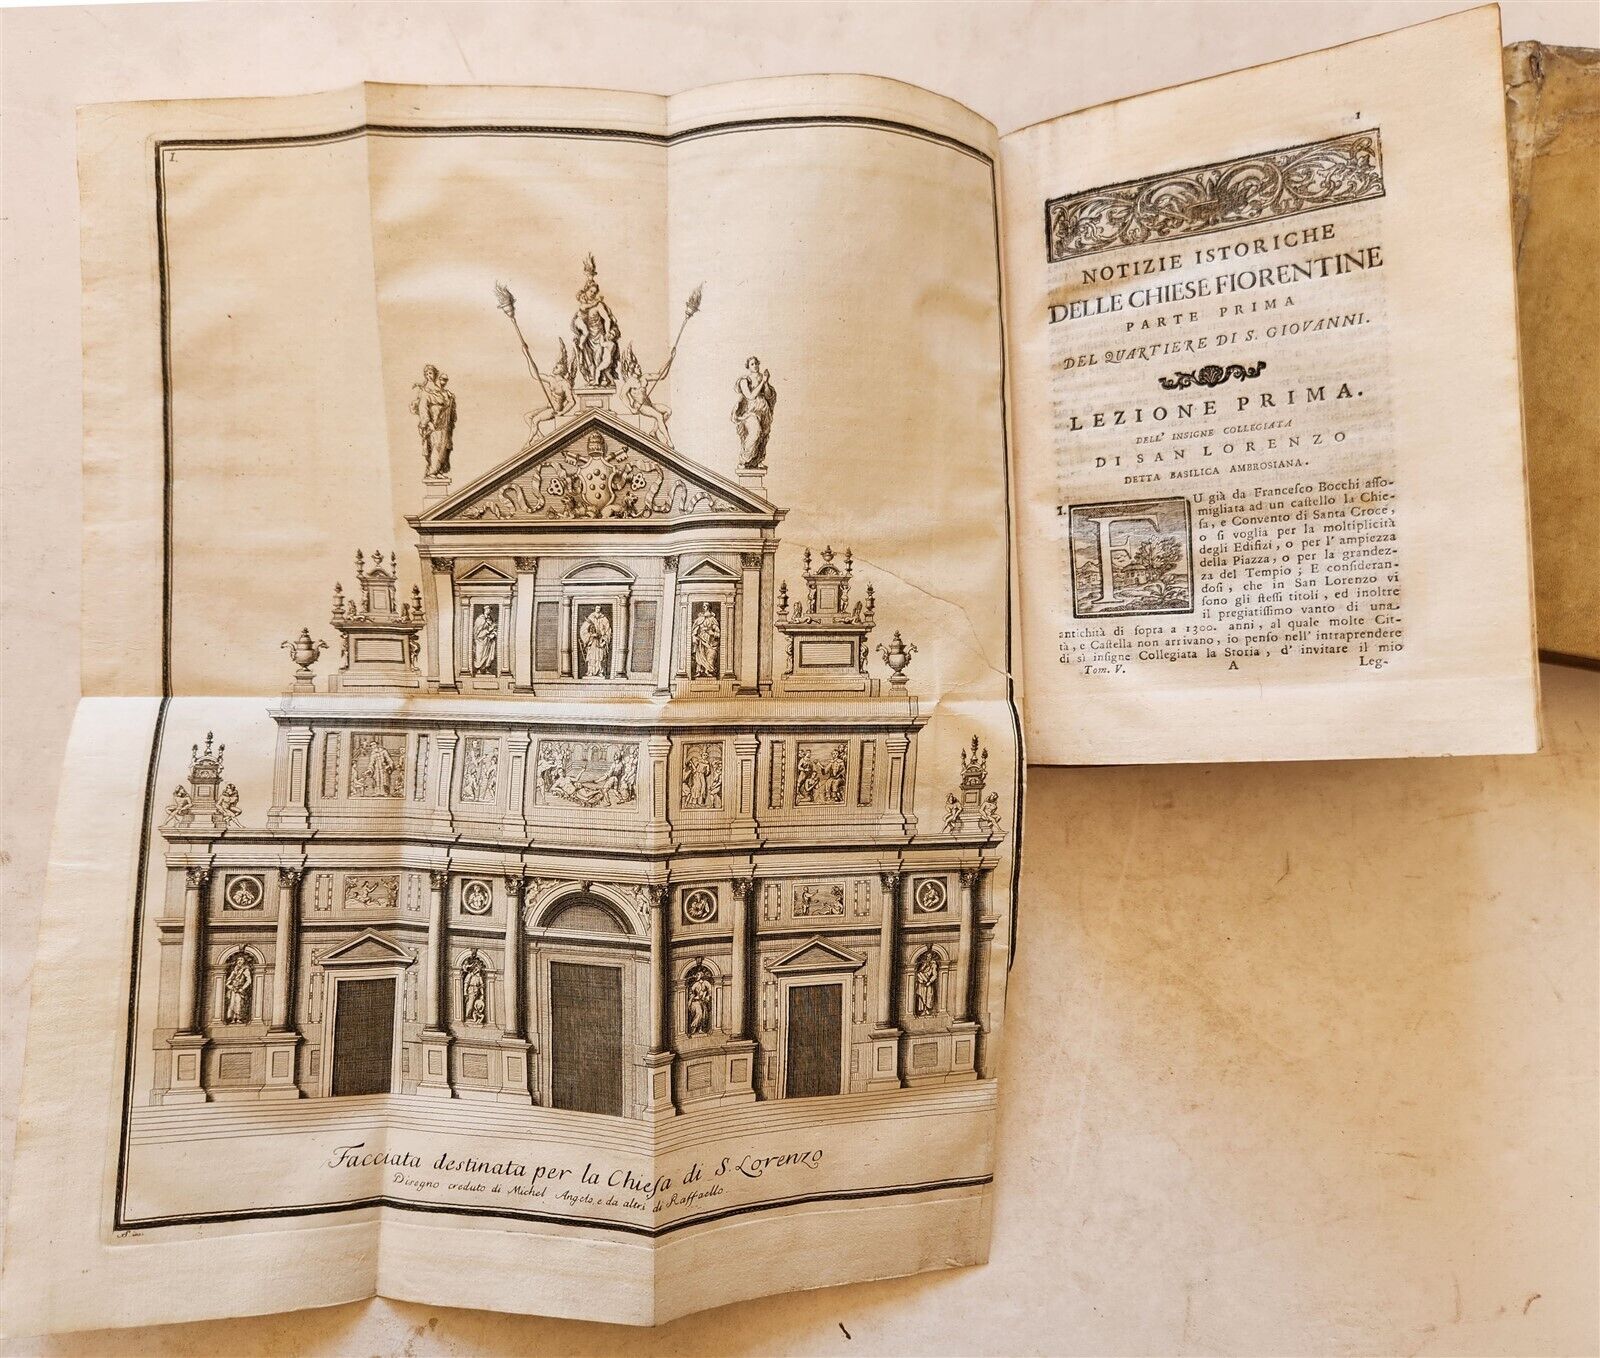 I.
Facciata destinata per la Chiesa di S. Lorenzo
Disegno creduto di Michel Angelo, e da altri di Raffaello.
1
NOTIZIE ISTORICHE
DELLE CHIESE FIORENTINE
PARTE PRIMA
DEL QUARTIERE DI S. GIOVANNI.
LEZIONE PRIMA.
DELL' INSIGNE COLLEGIATA
DI SAN LORENZO
DETTA BASILICA AMBROSIANA.
I. FU già da Francesco Bocchi asso-
migliata ad un castello la Chie-
sa, e Convento di Santa Croce,
o si voglia per la moltiplicità
degli Edifizi, o per l' ampiezza
della Piazza, o per la grandez-
za del Tempio; E consideran-
dosi, che in San Lorenzo vi
sono gli stessi titoli, ed inoltre
il pregiatissimo vanto di una
antichità di sopra a 1300. anni, al quale molte Cit-
tà, e Castella non arrivano, io penso nell' intraprendere
di sì insigne Collegiata la Storia, d' invitare il mio
Tom. V. A Leg-